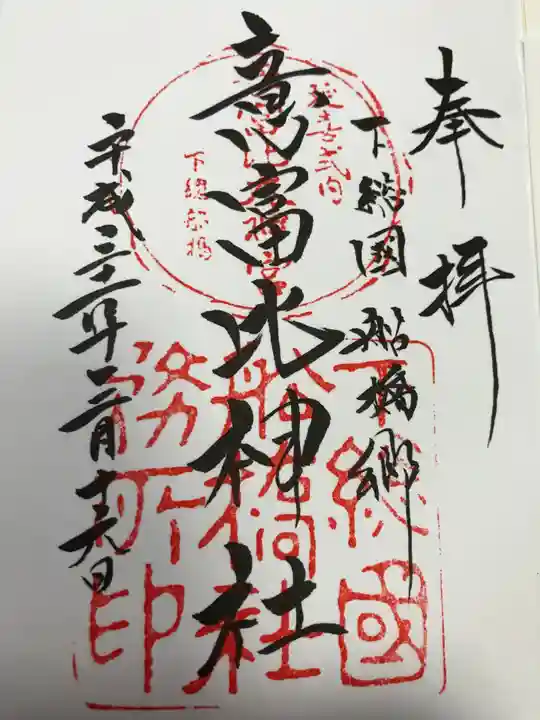 奉拝
下総國船橋郷
意富比神社
平成三十一年三月十六日
延喜式内
下總船橋
下總國
船橋社
務所印